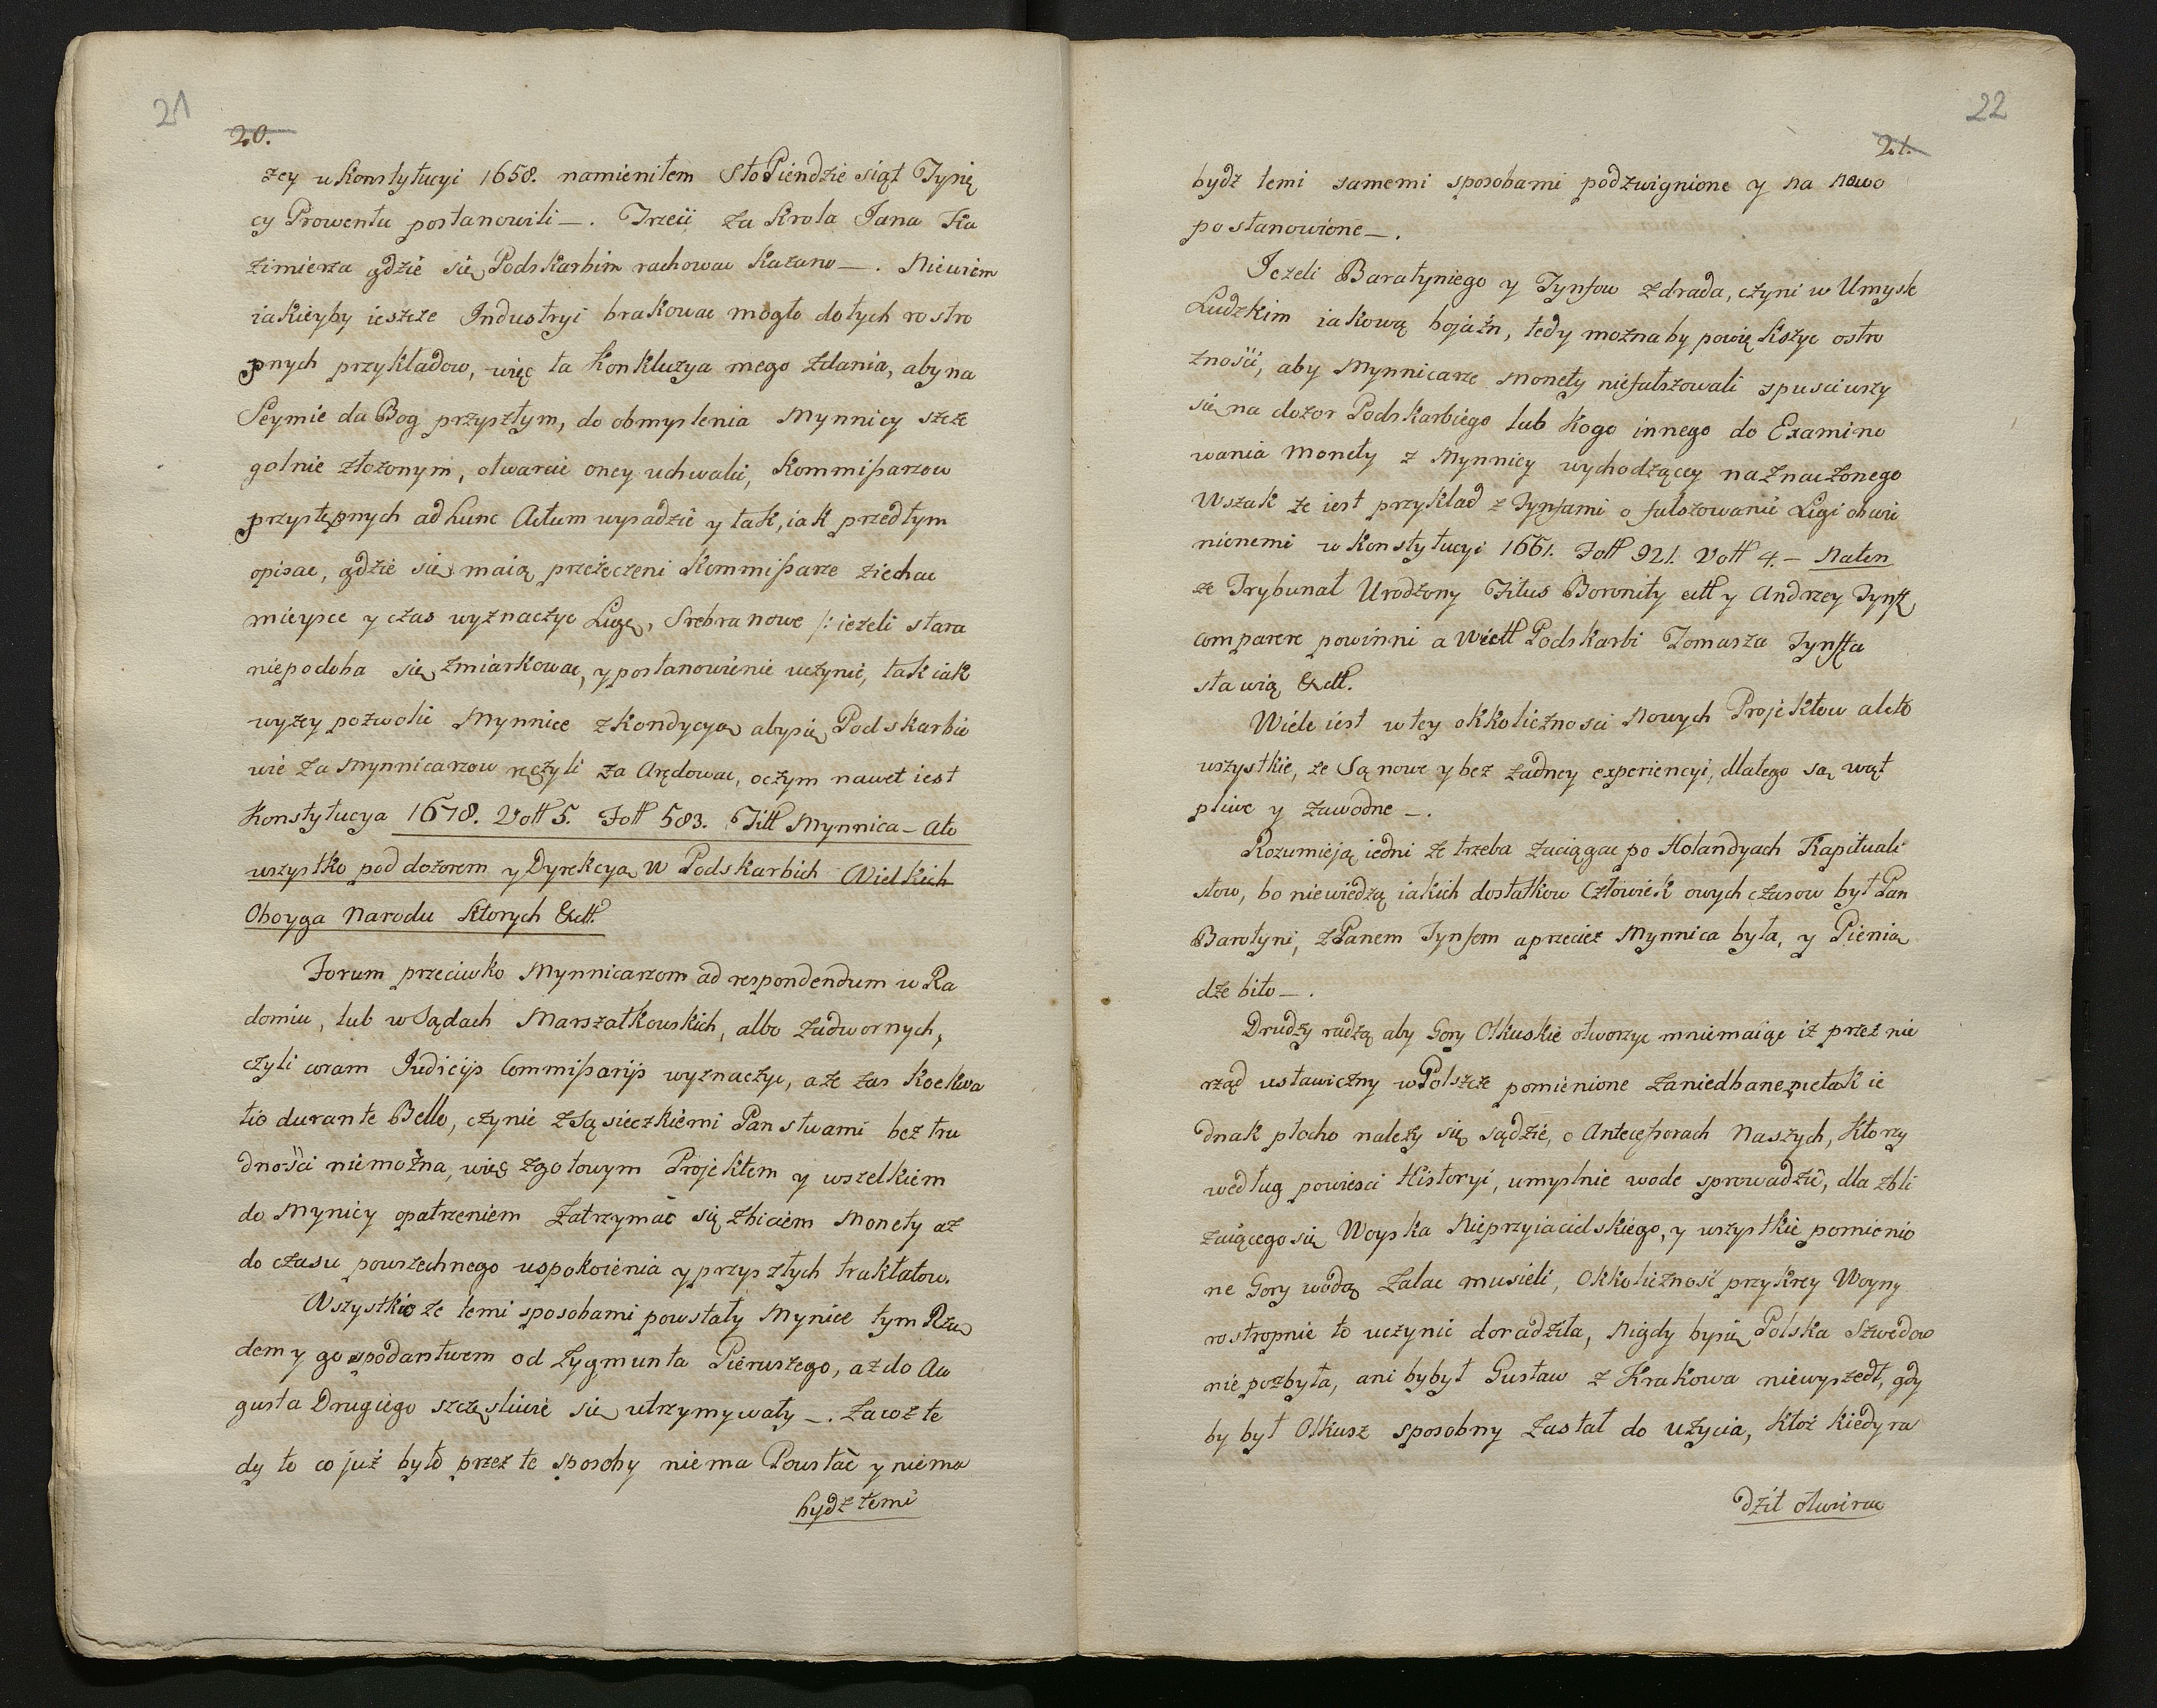 21
20.
zey w Konstytucyi 1658. namieniłem Sto Piendzie siąt Tysię
cy Prowentu postanowili –. Trzeci za Krola Jana Ka
zimierza gdzie się Podskarbim rachowac kazano –. Niewiem
iakieyby ieszcze Industryi brakowac mogło do tych rostro
pnych przykładow, więc ta Konkluzya mego zdania, aby na
Seymie da Bog przyszłym, do obmyslenia Mynnicy szcze
golnie złozonym, otwarcie oney uchwalic, Kommissarzow
przystępnych ad hunc Actum wysadzic y tak, iak przedtym
opisac, gdzie się maią przeżeczeni Kommissarze ziechac
mieysce y czas wyznaczyc Ligę, Srebra nowe /: iezeli stara
niepodoba się zmiarkowac, y postanowienie uczynic, tak iak
wyzey pozwolic Mynnice z kondycyą aby się Podskarbio
wie za Mynnicarzow ręczyli za Arędowac, oczym nawet iest
Konstytucya 1678. Voll 5. Foll 583. Titt Mynnica – Ato
wszystko pod dozorem y Dyrekcyą W Podskarbich Wielkich
Oboyga Narodu ktorych &ctt.
Forum przeciwko Mynnicarzom ad respondendum w Ra
domiu, lub w Sądach Marszałkowskich, albo Zadwornych,
czyli coram Judicijs Commissarijs wyznaczyc, a ze zas Koekwa
tio durante Bello, czynic z Sąsieczkiemi Panstwami bez tru
dności niemożna, więc zgotowym Projektem y wszelkiem
do Mynicy opatrzeniem zatrzymać się z biciem Monety az
do czasu powszechnego uspokoienia y przyszłych traktatow.
Wszystkie ze temi sposobami powstały Mynice tym Rzą
dem y gospodarstwem od Zygmunta Pierwszego, az do Au
gusta Drugiego szczęsliwie się utrzymywały –. Zacoz te
dy to co już było przez te sposoby niema Powstać y niema
bydz temi
22
21.
bydz temi samemi sposobami podzwignione y na nowo
postanowione –.
Jezeli Baratyniego y Tynfow zdrada, czyni w Umysle
Ludzkim iakową bojaźn, tedy moznaby powiększyc ostro
zności, aby Mynnicarze Monety niefałszowali spusciwszy
się na dozor Podskarbiego lub kogo innego do Examino
wania Monety z Mynnicy wychodzącey naznaczonego
Wszak ze iest przykład z Tynfami o fałszowanie Ligi obwi
nionemi w Konstytucyi 1661. Foll 921. Voll 4. – Naten
ze Trybunał Urodzony Titus Boronity ctt y Andrzey Tynff
comparere powinni a Wiell Podskarbi Tomasza Tynffa
stawią &ctt.
Wiele iest w tey okkolicznosci Nowych Projektow ale to
wszystkie, ze Są nowe y bez zadney experiencyi, dlatego są wąt
pliwe y zawodne –.
Rozumieją iedni ze trzeba zaciągac po Holandyach Kapituali
stow, bo niewiedzą iakich dostatkow Człowiek owych czasow był Pan
Barotyni, z Panem Tynfem a przeciez Mynnica była, y Pienią
dze bito –.
Drudzy radzą aby Gory Olkuskie otworzyc mniemaiąc iz przez nie
rząd ustawiczny w Polszcze pomienione zaniedbane, nietak ie
dnak płocho nalezy się sądzic, o Antecessorach Naszych, ktorzy
według powiesci Historyi, umyslnie wode sprowadzic, dla zbli
zaiącego się Woyska Nieprzyiacielskiego, y wszystkie pomienio
ne Gory wodą zalac musieli, Okkoliczność przykrey Woyny
rostropnie to uczynic doradziła, Nigdy by się Polska Szwedow
nie pozbyła, ani by był Gustaw z Krakowa niewyszedł, gdy
by był Olkusz sposobny zastał do użycia, ktoż kiedy ra
dził otwirac